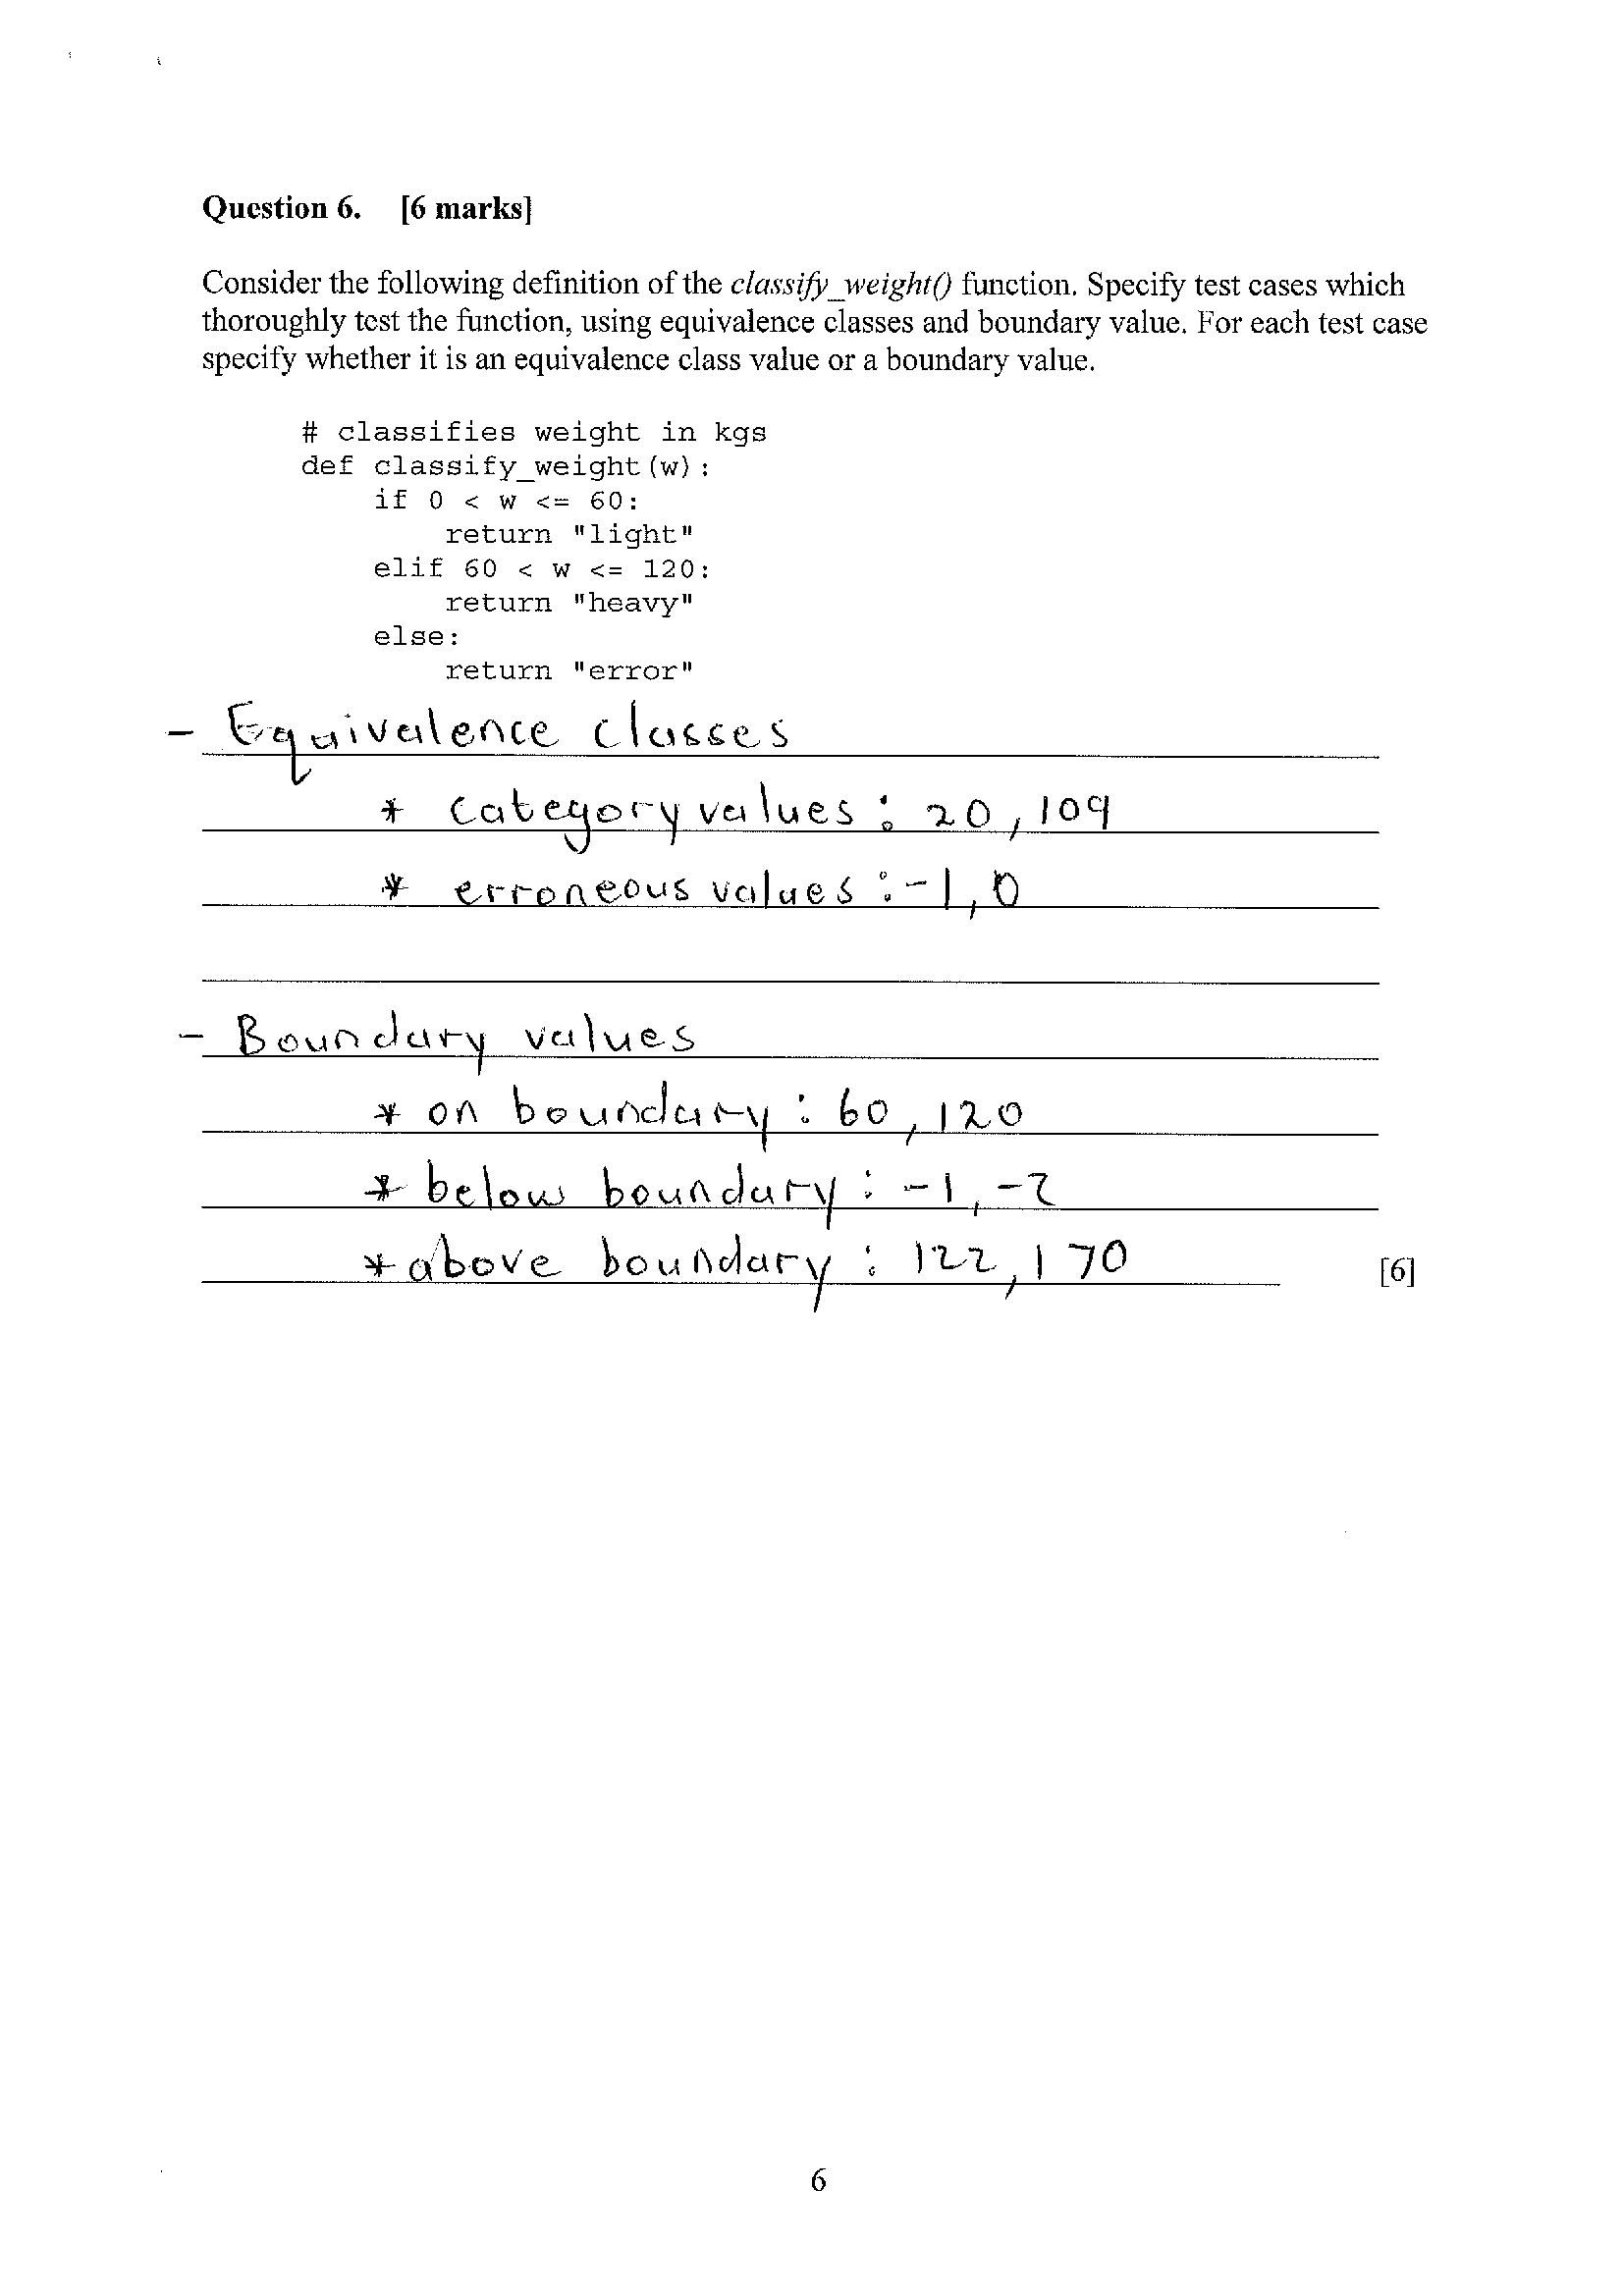 Question 6. [6 marks]
Consider the following definition of the classify_weight() function. Specify test cases which
thoroughly test the function, using equivalence classes and boundary value. For each test case
specify whether it is an equivalence class value or a boundary value.
# classifies weight in kgs
def classify_weight(w):
    if 0 < w <= 60:
        return "light"
    elif 60 < w <= 120:
        return "heavy"
    else:
        return "error"
- Equivalence classes
* category values : 20, 109
* erroneous values : -1, 0
- Boundary values
* on boundary : 60, 120
* below boundary : -1, -2
* above boundary : 122, 170
[6]
6